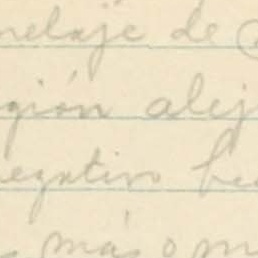 nelaje de
gión alej
negativo be
más o m